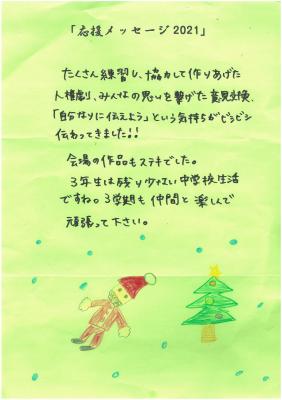 「応援メッセージ2021」
たくさん練習し、協力して作りあげた
人権劇、みんなの思いを繋げた意見交換、
「自分なりに伝えよう」という気持ちがビシビシ
伝わってきました!!
会場の作品もステキでした。
3年生は残り少ない中学校生活
ですね。3学期も仲間と楽しんで
頑張って下さい。